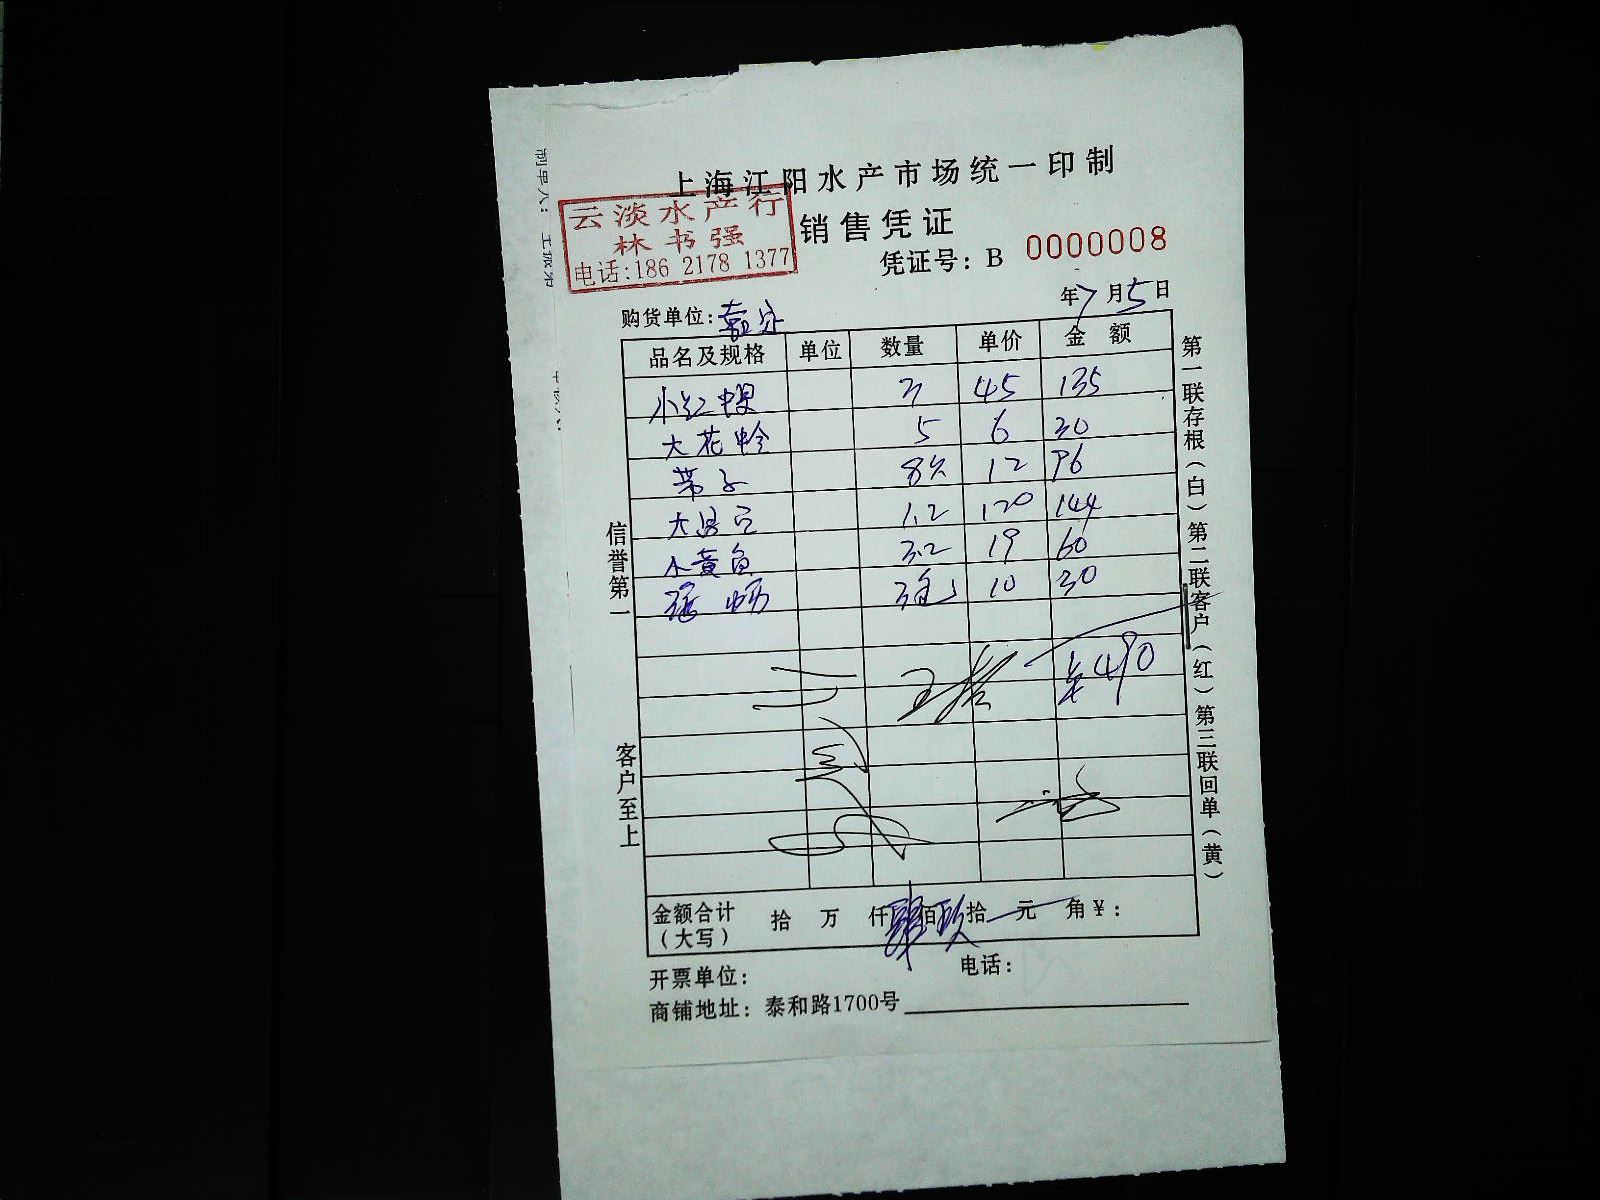 上海江阳水产市场统一印制
云淡水产行
林书强
电话:186 2178 1377
销售凭证
凭证号: B 0000008
年7月5日
购货单位:
品名及规格 单位 数量 单价 金额
小红 3 45 135
大花蛤 5 6 30
带子 8 12 96
大 1.2 120 144
小黄鱼 3.2 19 60
3包 10 30
490
金额合计(大写) 拾 万 仟肆佰玖拾 元 角¥:
开票单位: 电话:
商铺地址: 泰和路1700号
信誉第一
客户至上
第一联存根(白)第二联客户(红)第三联回单(黄)
制单人: